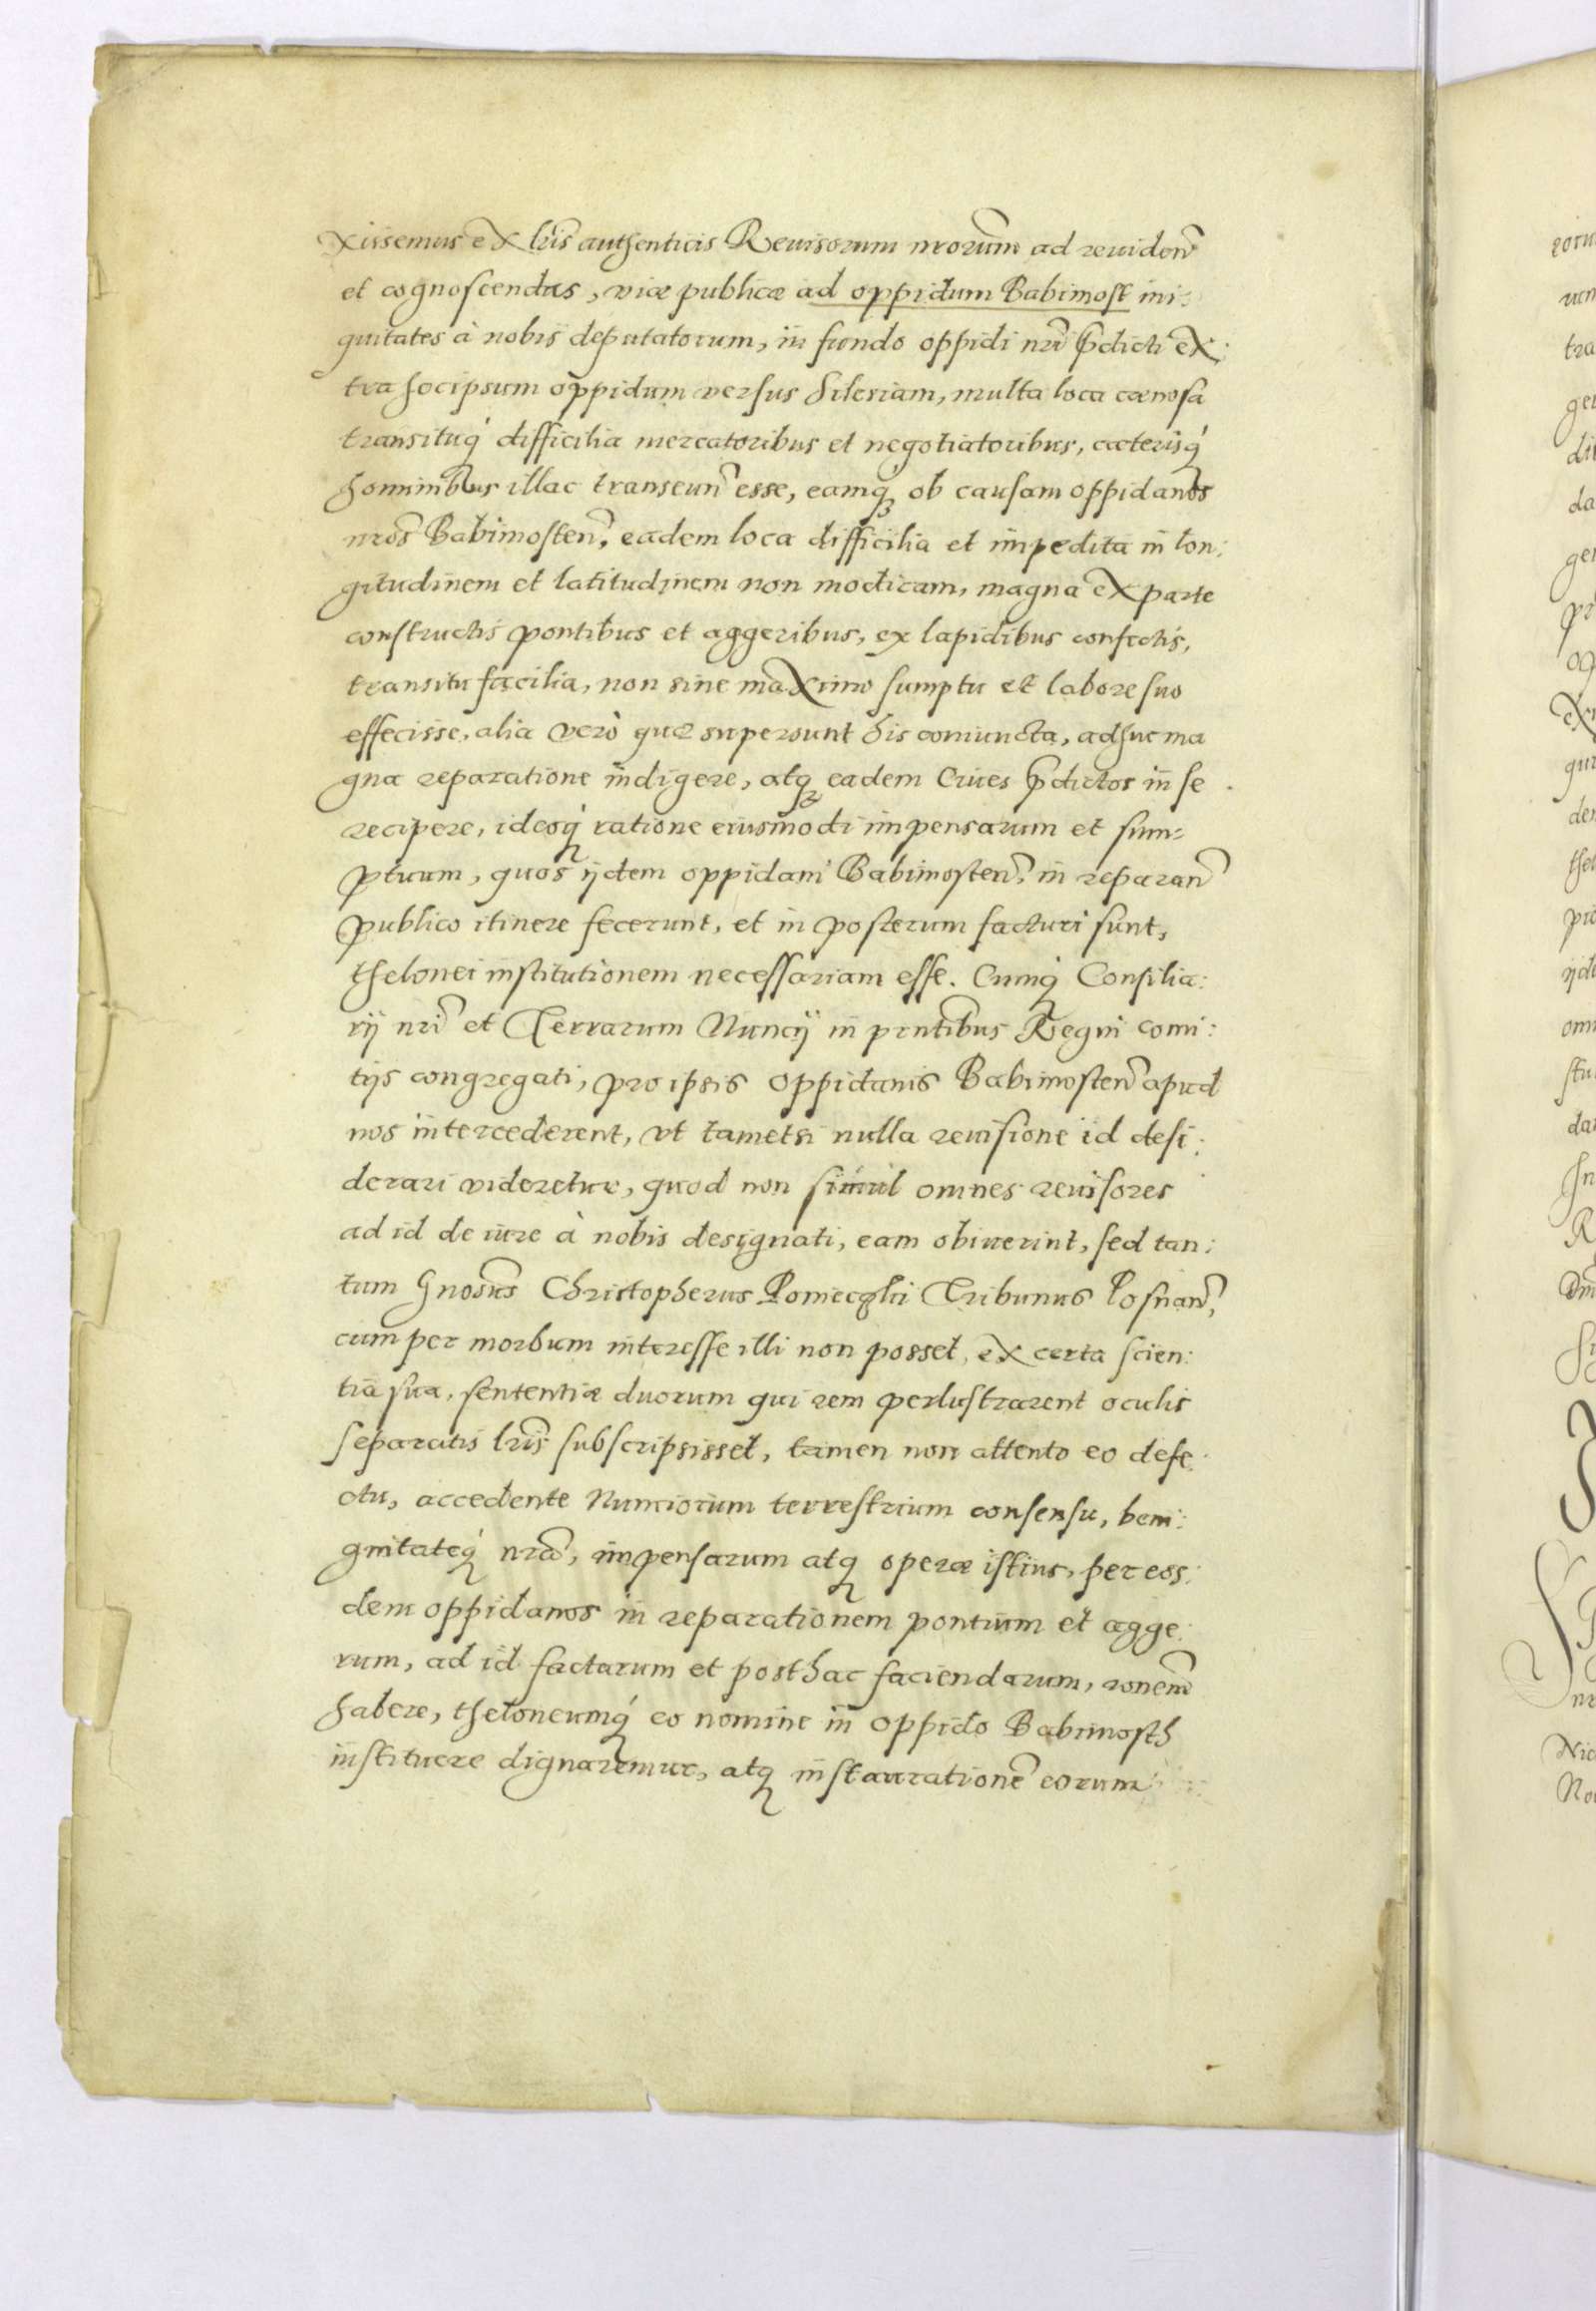 xissemus ex lris authenticis Reuisorum nrorum ad reuiden
et cognoscendas, viæ publicæ ad oppidum Babimost ini:
quitates à nobis deputatorum, in fundo oppidi nri pdicti ex:
tra hocipsum oppidum versus Silesiam, multa loca cænosa
transituq́ difficilia mercatoribus et negotiatoribus, cæterisq́
hominibus illac transeun esse, eamq; ob causam oppidanos
nros Babimosten. eadem loca difficilia et impedita in lon:
gitudinem et latitudinem non modicam, magna ex parte
constructis pontibus et aggeribus, ex lapidibus confectis,
transitu facilia, non sine maximo sumptu et labore suo
effecisse, alia verò quæ supersunt his coniuncta, adhuc ma
gna reparatione indigere, atq; eadem Ciues pdictos in se
recipere, ideoq́ ratione eiusmodi impensarum et sum=
ptuum, quos ijdem oppidani Babimosten. in reparan
publico itinere fecerunt, et in posterum facturi sunt,
thelonei institutionem necessariam esse. Cumq́ Consilia:
rij nri et Terrarum Nuncij in pntibus Regni comi:
tijs congregati, pro ipsis oppidanis Babimosten apud
nos intercederent, vt tametsi nulla reuisione id desi:
derari videretur, quod non simul omnes reuisores
ad id de iure à nobis designati, eam obiuerint, sed tan:
tum Gnosus Christopherus Ponieczki Tribunus Posnan,
cum per morbum interesse illi non posset, ex certa scien:
tia sua, sententiæ duorum qui rem perlustrarent oculis
separatis lris subscripsisset, tamen non attento eo defe:
ctu, accedente Nunciorum terrestrium consensu, beni:
gnitateq́ nra, impensarum atq; operæ istius, per eos:
dem oppidanos in reparationem pontium et agge:
rum, ad id factarum et posthac faciendarum, ronem
habere, theloneumq́ eo nomine in oppido Babimosth
instituere dignaremur, atq; instauratione eorum